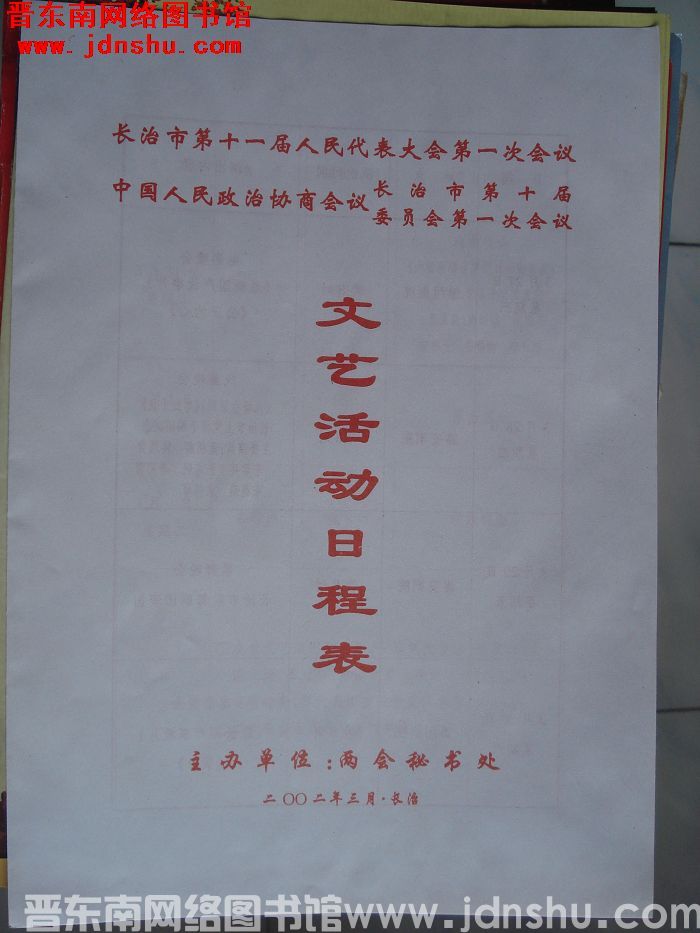 晋东南网络图书馆
www.jdnshu.com
长治市第十一届人民代表大会第一次会议
中国人民政治协商会议长治市第十届
委员会第一次会议
文艺活动日程表
主办单位:两会秘书处
二〇〇二年三月·长治
晋东南网络图书馆 www.jdnshu.com